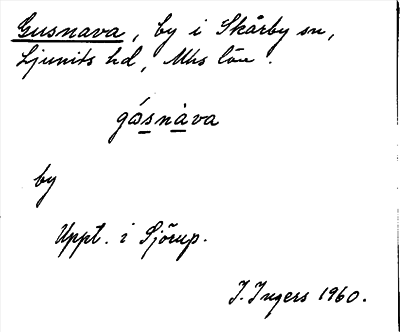 Gusnava, by i Skårby sn,
Ljunits hd, Mhs län.
gásnàva
by
Uppt. i Sjörup.
I. Ingers 1960.